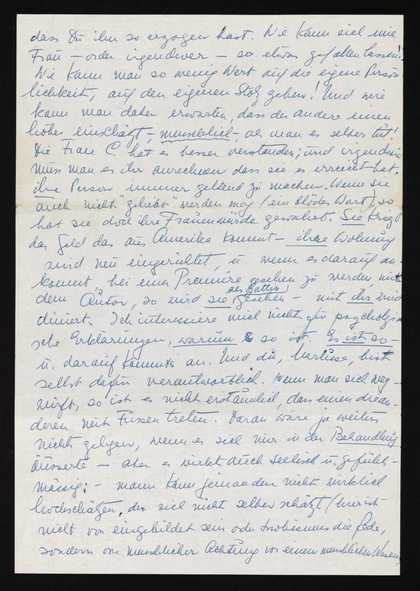 dass Du ihn so erzogen hast. Wie kann sich eine
Frau – oder irgendwer – so etwas gefallen lassen!
Wie kann man so wenig Wert auf die eigene Persön-
lichkeit, auf den eigenen Stolz geben! Und wie
kann man daher erwarten, dass der andere einen
höher einschätzt, – menschlich – als man es selber tut!
Die Frau C. hat es besser verstanden; und irgendwie
muss man es ihr anrechnen dass sie es erreicht hat,
ihre Person immer geltend zu machen. Wenn sie
auch nicht "geliebt" werden mag (ein blödes Wort), so
hat sie doch ihre Frauenwürde gewahrt. Sie kriegt
das Geld das aus Amerika kommt – ihre Wohnung
wird neu eingerichtet, u. wenn es darauf an-
kommt, bei einer Première gesehen zu werden mit
dem Autor, so wird sie als Gattin gesehen – mit ihr wird
diniert. Ich interessiere mich nicht für psychologi-
sche Erklärungen, warum es so ist. Es ist so –
u. darauf kommt es an. Und du, bist
selbst dafür verantwortlich. Wenn man sich weg-
wirft, so ist es nicht erstaunlich, dass einen die an-
deren mit Füssen treten. Daran wäre ja weiter
nichts gelegen, wenn es sich nur in der Behandlung
äusserte – aber es wirkt auch seelisch u. gefühls-
mässig; – man kann jemanden nicht wirklich
hochschätzen, der sich nicht selber schätzt (hier ist
nicht von eingebildet sein oder Snobismus die Rede,
sondern von menschlicher Achtung vor einem menschlichen Wesen)